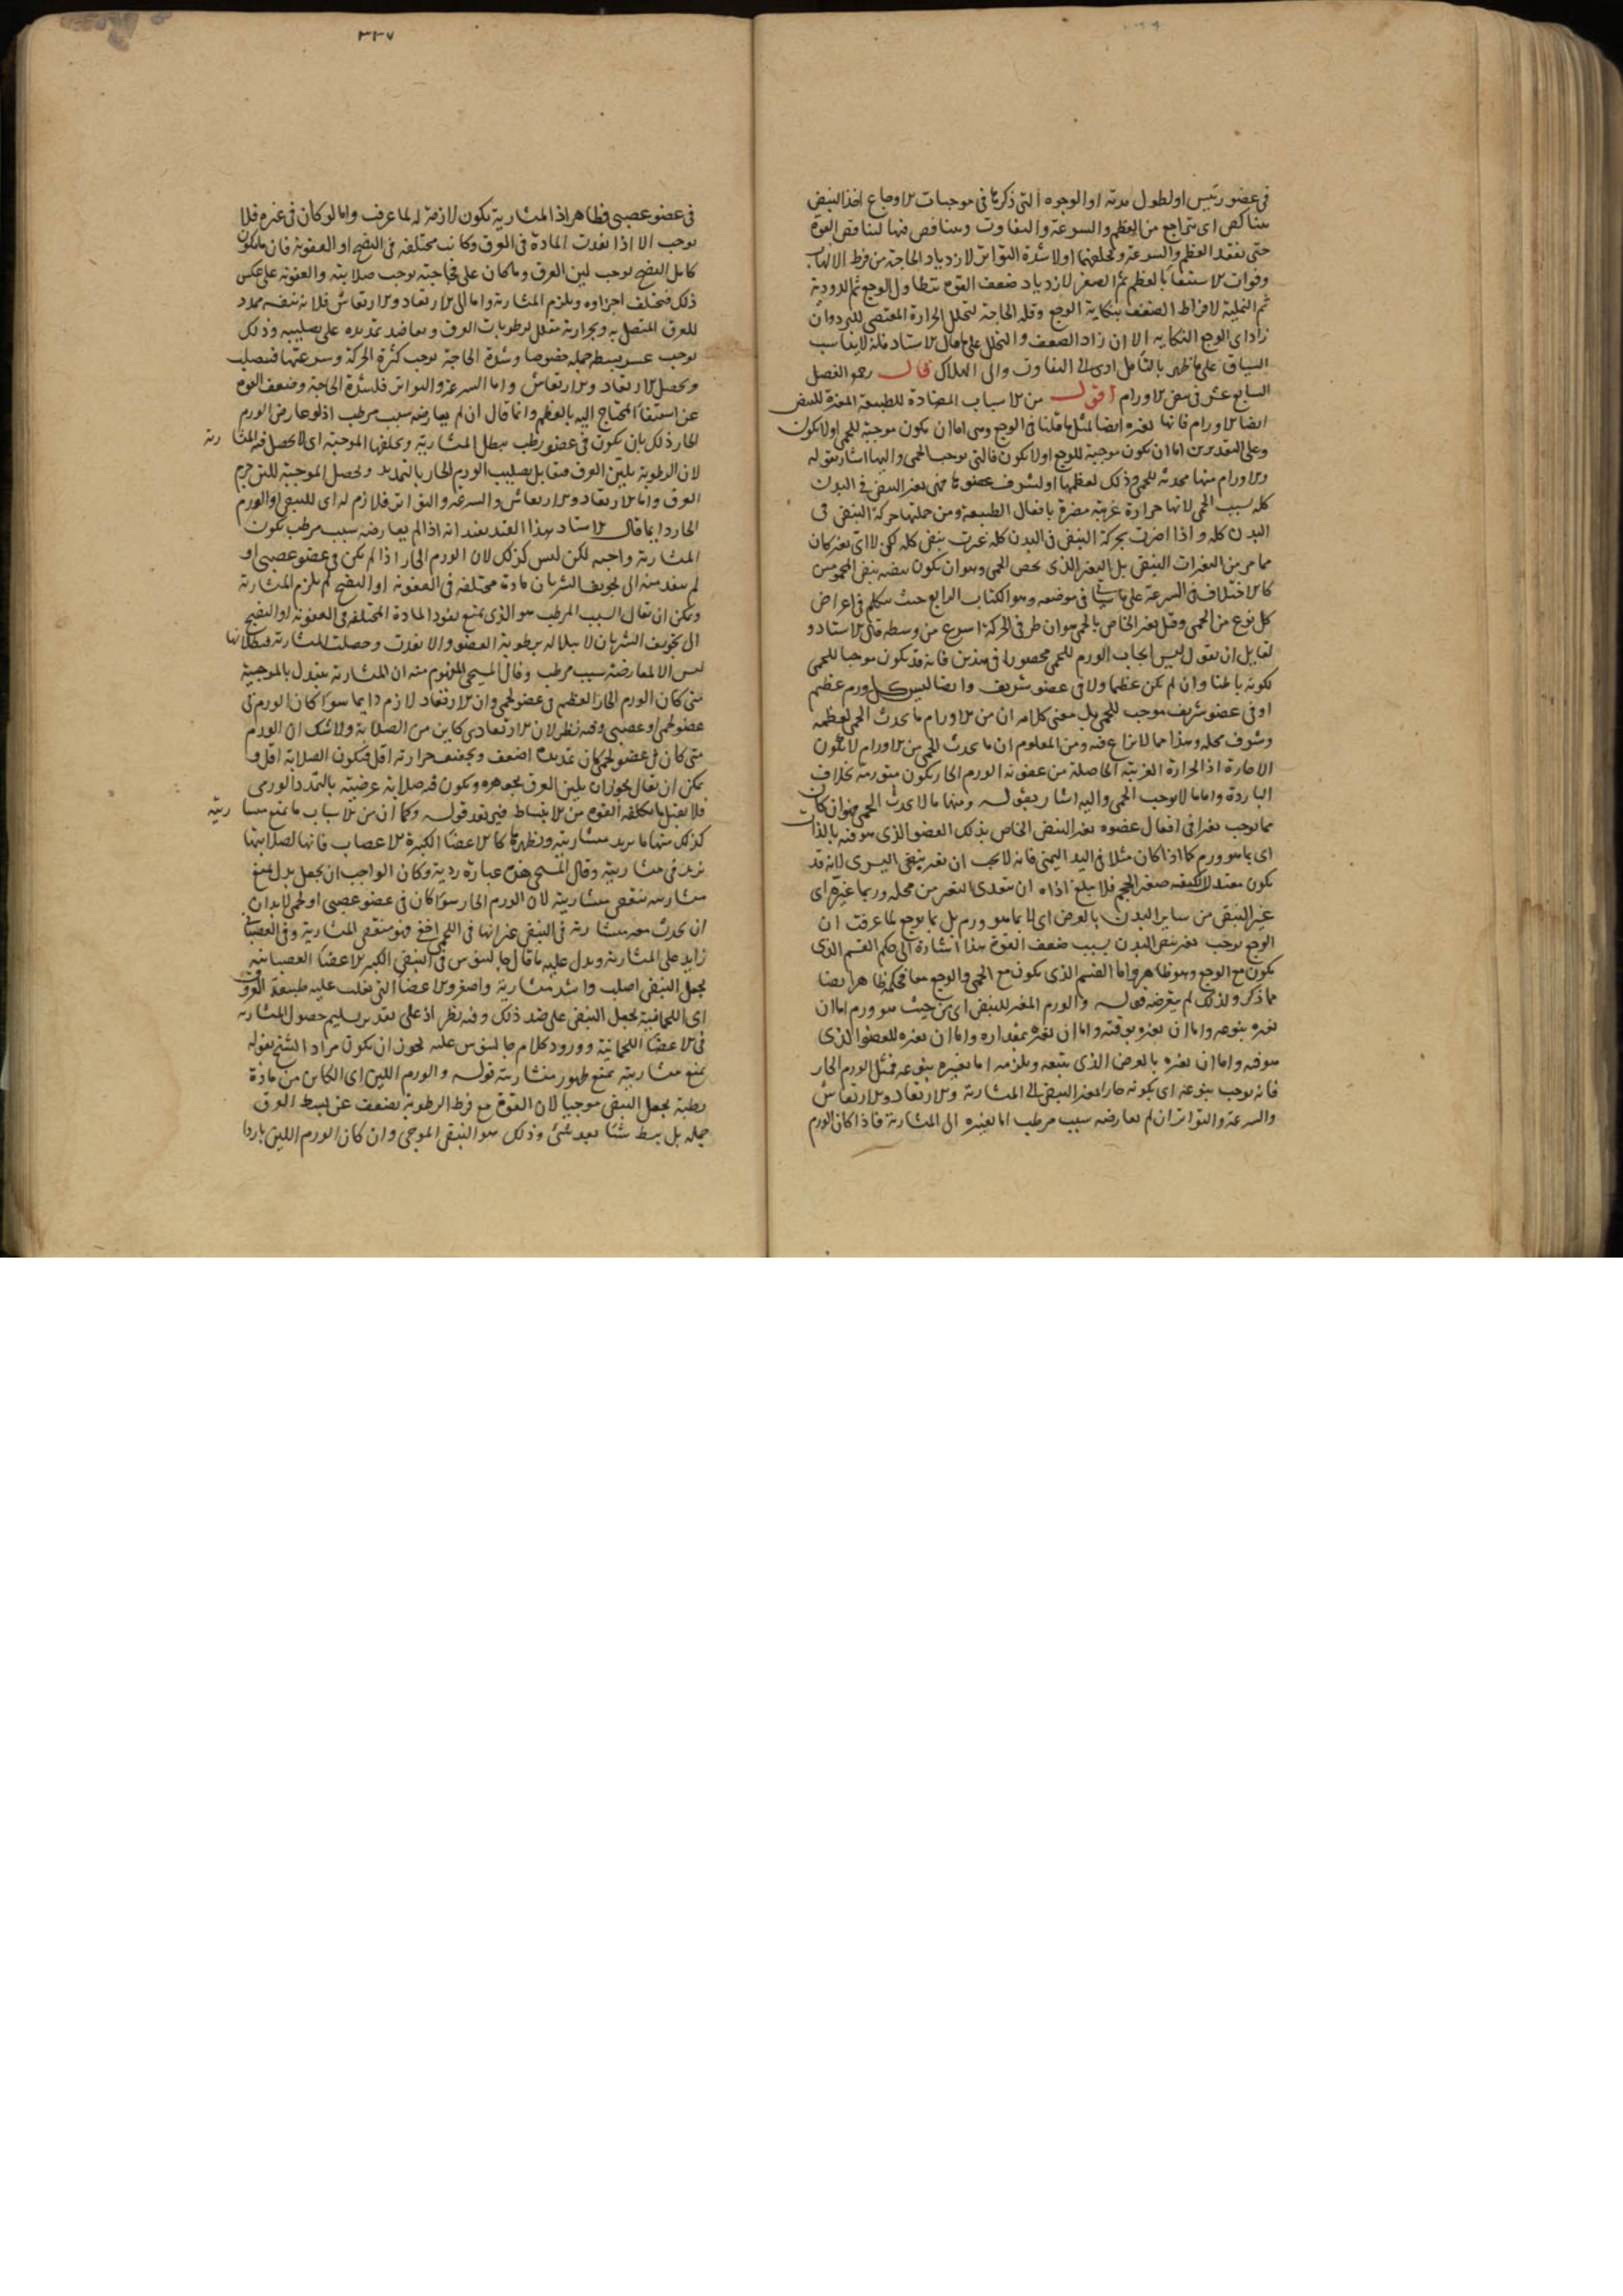 فى عضو رئيس او لطول مدته او الوجوه التى ذكرناها فى موجبات الاوجاع اخذ النبض
يتناكص اى يتراجع من العظم والسرعة والتفاوت ويتناقص فيها لتناقص القوة
حتى يفقد العظم والسرعة ويخلفهما اولا شدة التواتر لازدياد الحاجة من فرط الالتهاب
وفوات الاستيفاء بالعظم ثم الصغر لازدياد ضعف القوة بتطاول الوجع ثم الدودية
ثم النملية لافراط الضعف بنكاية الوجع وقلة الحاجة لتحلل الحرارة المقتضى للبرد وان
زاد اى الوجع النكاية الا ان زاد الضعف والتحلل على ما قال الاستاد فلا يناسب
السياق على ما يظهر بالتأمل ادى الى التفاوت والى الهلاك قال رحمه الفصل
السابع عشر فى نبض الاورام اقول من الاسباب المضادة للطبيعة المغيرة للنبض
ايضا الاورام فانها تغيره ايضا لمثل ما قلنا فى الوجع وهى اما ان تكون موجبة للحمى او لا تكون
وعلى التقديرين اما ان تكون موجبة للوجع او لا تكون فالتى توجب الحمى واليها اشار بقوله
والاورام منها محدثة للحمى وذلك لعظمها او لشرف عضوها فهى تغير النبض فى البدن
كله بسبب الحمى لانها حرارة غريبة مضرة بافعال الطبيعة ومن جملتها حركة النبض فى
البدن كله واذا اضرت بحركة النبض فى البدن كله غيرت نبض كله لكن لا اى تغير كان
مما مر من تغيرات النبض بل التغير الذى يخص الحمى وهو ان يكون نبضه نبض المحمومين
كالاختلاف فى السرعة على ما يأتى فى موضعه وهو الكتاب الرابع حيث يتكلم فى اعراض
كل نوع من الحمى وقيل تغير الخاص بالحمى هو ان طرفى الحركة اسرع من وسطه قال الاستاد و
لقايل ان يقول ليس ايجاب الورم للحمى محصورا فى هذين فانه قد يكون موجبا للحمى
لكونه باطنا وان لم يكن عظيما ولا فى عضو شريف وايضا ليس كل ورم عظيم
او فى عضو شريف موجب للحمى بل معنى كلامه ان من الاورام ما يحدث الحمى لعظمه
وشرف محله وهذا مما لا نزاع فيه ومن المعلوم ان ما يحدث الحمى من الاورام لا يكون
الا حارة اذ الحرارة الغريبة الحاصلة من عفونة الورم الحار تكون متورمة بخلاف
الباردة واما ما لا يوجب الحمى واليه اشار بقوله ومنها ما لا يحدث الحمى فهو ان كان
مما يوجب تغيرا فى افعال عضوه تغير النبض الخاص بذلك العضو الذى هو فيه بالذات
اى بما هو ورم كما اذا كان مثلا فى اليد اليمنى فانه لا يجب ان تغير نبض اليسرى لانه قد
يكون معتدل الكيفية صغير الحجم فلا يبلغ اذاه ان يتعدى التغير من محله وربما غيره اى
غير النبض من ساير البدن بالعرض اى لا بما هو ورم بل بما يوجع لما عرفت ان
الوجع يوجب تغير نبض البدن بسبب ضعف القوة هذا اشارة الى حكم القسم الذى
يكون مع الوجع وهو ظاهر واما القسم الذى يكون مع الحمى والوجع معا فحكمه ظاهر ايضا
مما ذكر ولذلك لم يتعرضه قوله والورم المغير للنبض اى من حيث هو ورم اما ان
يغيره بنوعه واما ان يغيره بوقته واما ان يغيره بمقداره واما ان يغيره للعضو الذى
هو فيه واما ان يغيره بالعرض الذى يتبعه ويلزمه اما تغييره بنوعه فمثل الورم الحار
فانه يوجب بنوعه اى بكونه حارا تغير النبض الى المنشارية والارتعاد والارتعاش
والسرعة والتواتر ان لم يعارضه سبب مرطب اما تغييره الى المنشارية فاذا كان الورم
٣٣٧
فى عضو عصبى فظاهر اذ المنشارية تكون لازمة له لما عرفت واما لو كان فى غيره فلا
يوجب الا اذا نفذت المادة فى العرق وكانت مختلفة فى النضج او العفونة فان ما يكون
كامل النضج يوجب لين العرق وما كان على فجاجته يوجب صلابته والعفونة على عكس
ذلك فتختلف اجزاوه ويلزم المنشارية واما الى الارتعاد والارتعاش فلانه بنفسه ممدد
للعرق المتصل به وبحرارته مقلل لرطوبات العرق ويعاضد تمديده على تصليبه وذلك
يوجب عسر بسطه جملة خصوصا وشدة الحاجة توجب كثرة الحركة وسرعتها فتنصلب
ويحصل الارتعاد والارتعاش واما السرعة والتواتر فلشدة الحاجة وضعف القوة
عن استيفاء المحتاج اليه بالعظم وانما قال ان لم يعارضه سبب مرطب اذ لو عارض الورم
الحار ذلك بان يكون فى عضو رطب يبطل المنشارية ويخلفها الموجبة اى لا يحصل فيه المنشارية
لان الرطوبة بتليين العرق تقابل تصليب الورم الحار بالتمديد ويحصل الموجبة للين جرم
العرق واما الارتعاد والارتعاش والسرعة والتواتر فلازم له اى للنبض او الورم
الحار دايما قال الاستاد هذا القيد يفيد انه اذا لم يعارضه سبب مرطب تكون
المنشارية واجبة لكن ليس كذلك لان الورم الحار اذا لم يكن فى عضو عصبى او
لم ينفذ منه الى تجويف الشريان مادة مختلفة فى العفونة او النضج لم يلزم المنشارية
ويمكن ان يقال السبب المرطب هو الذى يمنع نفوذ المادة المختلفة فى العفونة او النضج
الى تجويف الشريان لابتلاله برطوبة العضو والا نفذت وحصلت المنشارية فبطلانها
ليس الا لمعارضة سبب مرطب وقال المسيحى المفهوم منه ان المنشارية تتبدل بالموجبية
متى كان الورم الحار العظيم فى عضو لحمى وان الارتعاد لازم دايما سواء كان الورم فى
عضو لحمى او عصبى وفيه نظر لان الارتعادى كاين من الصلابة ولا شك ان الورم
متى كان فى عضو لحمى كان تمديده اضعف وتجفيف حرارته اقل فتكون الصلابة اقل و
يمكن ان يقال يجوز ان يلين العرق بجوهره ويكون فيه صلابة عرضية بالتمدد الورمى
فلا يقبل ما تكلفه القوة من الانبساط فيرتعد قوله وكما ان من الاسباب ما يمنع منشاريته
كذلك منها ما يزيد منشاريته ويظهرها كالاعضاء الكثيرة الاعصاب فانها لصلابتها
تزيد فى منشاريته وقال المسيحى هذه عبارة ردية وكان الواجب ان يجعل بدل يمنع
منشاريته ينقص منشاريته لان الورم الحار سواء كان فى عضو عصبى او لحمى لابد ان
ان يحدث معه منشارية فى النبض غير انها فى اللحمى اخفى فهو منقص المنشارية وفى العصبانى
زايد على المنشارية ويدل عليه ما قال جالينوس فى النبض الكبير الاعضاء العصبانية
تجعل النبض اصلب واشد منشارية واصغر والاعضاء التى تغلب عليه طبيعة العروق
اى اللحمانية تجعل النبض على ضد ذلك وفيه نظر اذ على تقدير تسليم حصول المنشارية
فى الاعضاء اللحمانية وورود كلام جالينوس عليه يجوز ان يكون مراد الشيخ بقوله
يمنع منشاريته يمنع ظهور منشاريته قوله والورم اللين اى الكاين من مادة
رطبة يجعل النبض موجيا لان القوة مع فرط الرطوبة تضعف عن بسط العرق
جملة بل يبسط شيئا بعد شىء وذلك هو النبض الموجى وان كان الورم اللين باردا